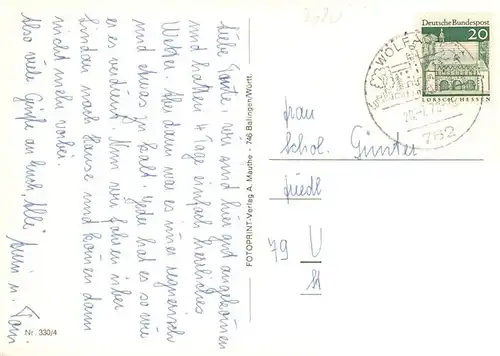 Liebe Tante, wir sind hier gut angekommen
und hatten 4 Tage einfach herrliches
Wetter. Aber dann war es immer regnerisch
und etwas zu kalt. Jeder hat es so wie
er es verdient. Nun wir fahren über
Lindau nach Hause und kommen dann
nicht mehr vorbei.
Also viele Grüße an Euch Alle
u. Toni
Nr. 330/4
FOTOPRINT-Verlag A. Mauthe - 746 Balingen/Württ.
Deutsche Bundespost
20
LORSCH/HESSEN
762
Frau
Günter
79 U